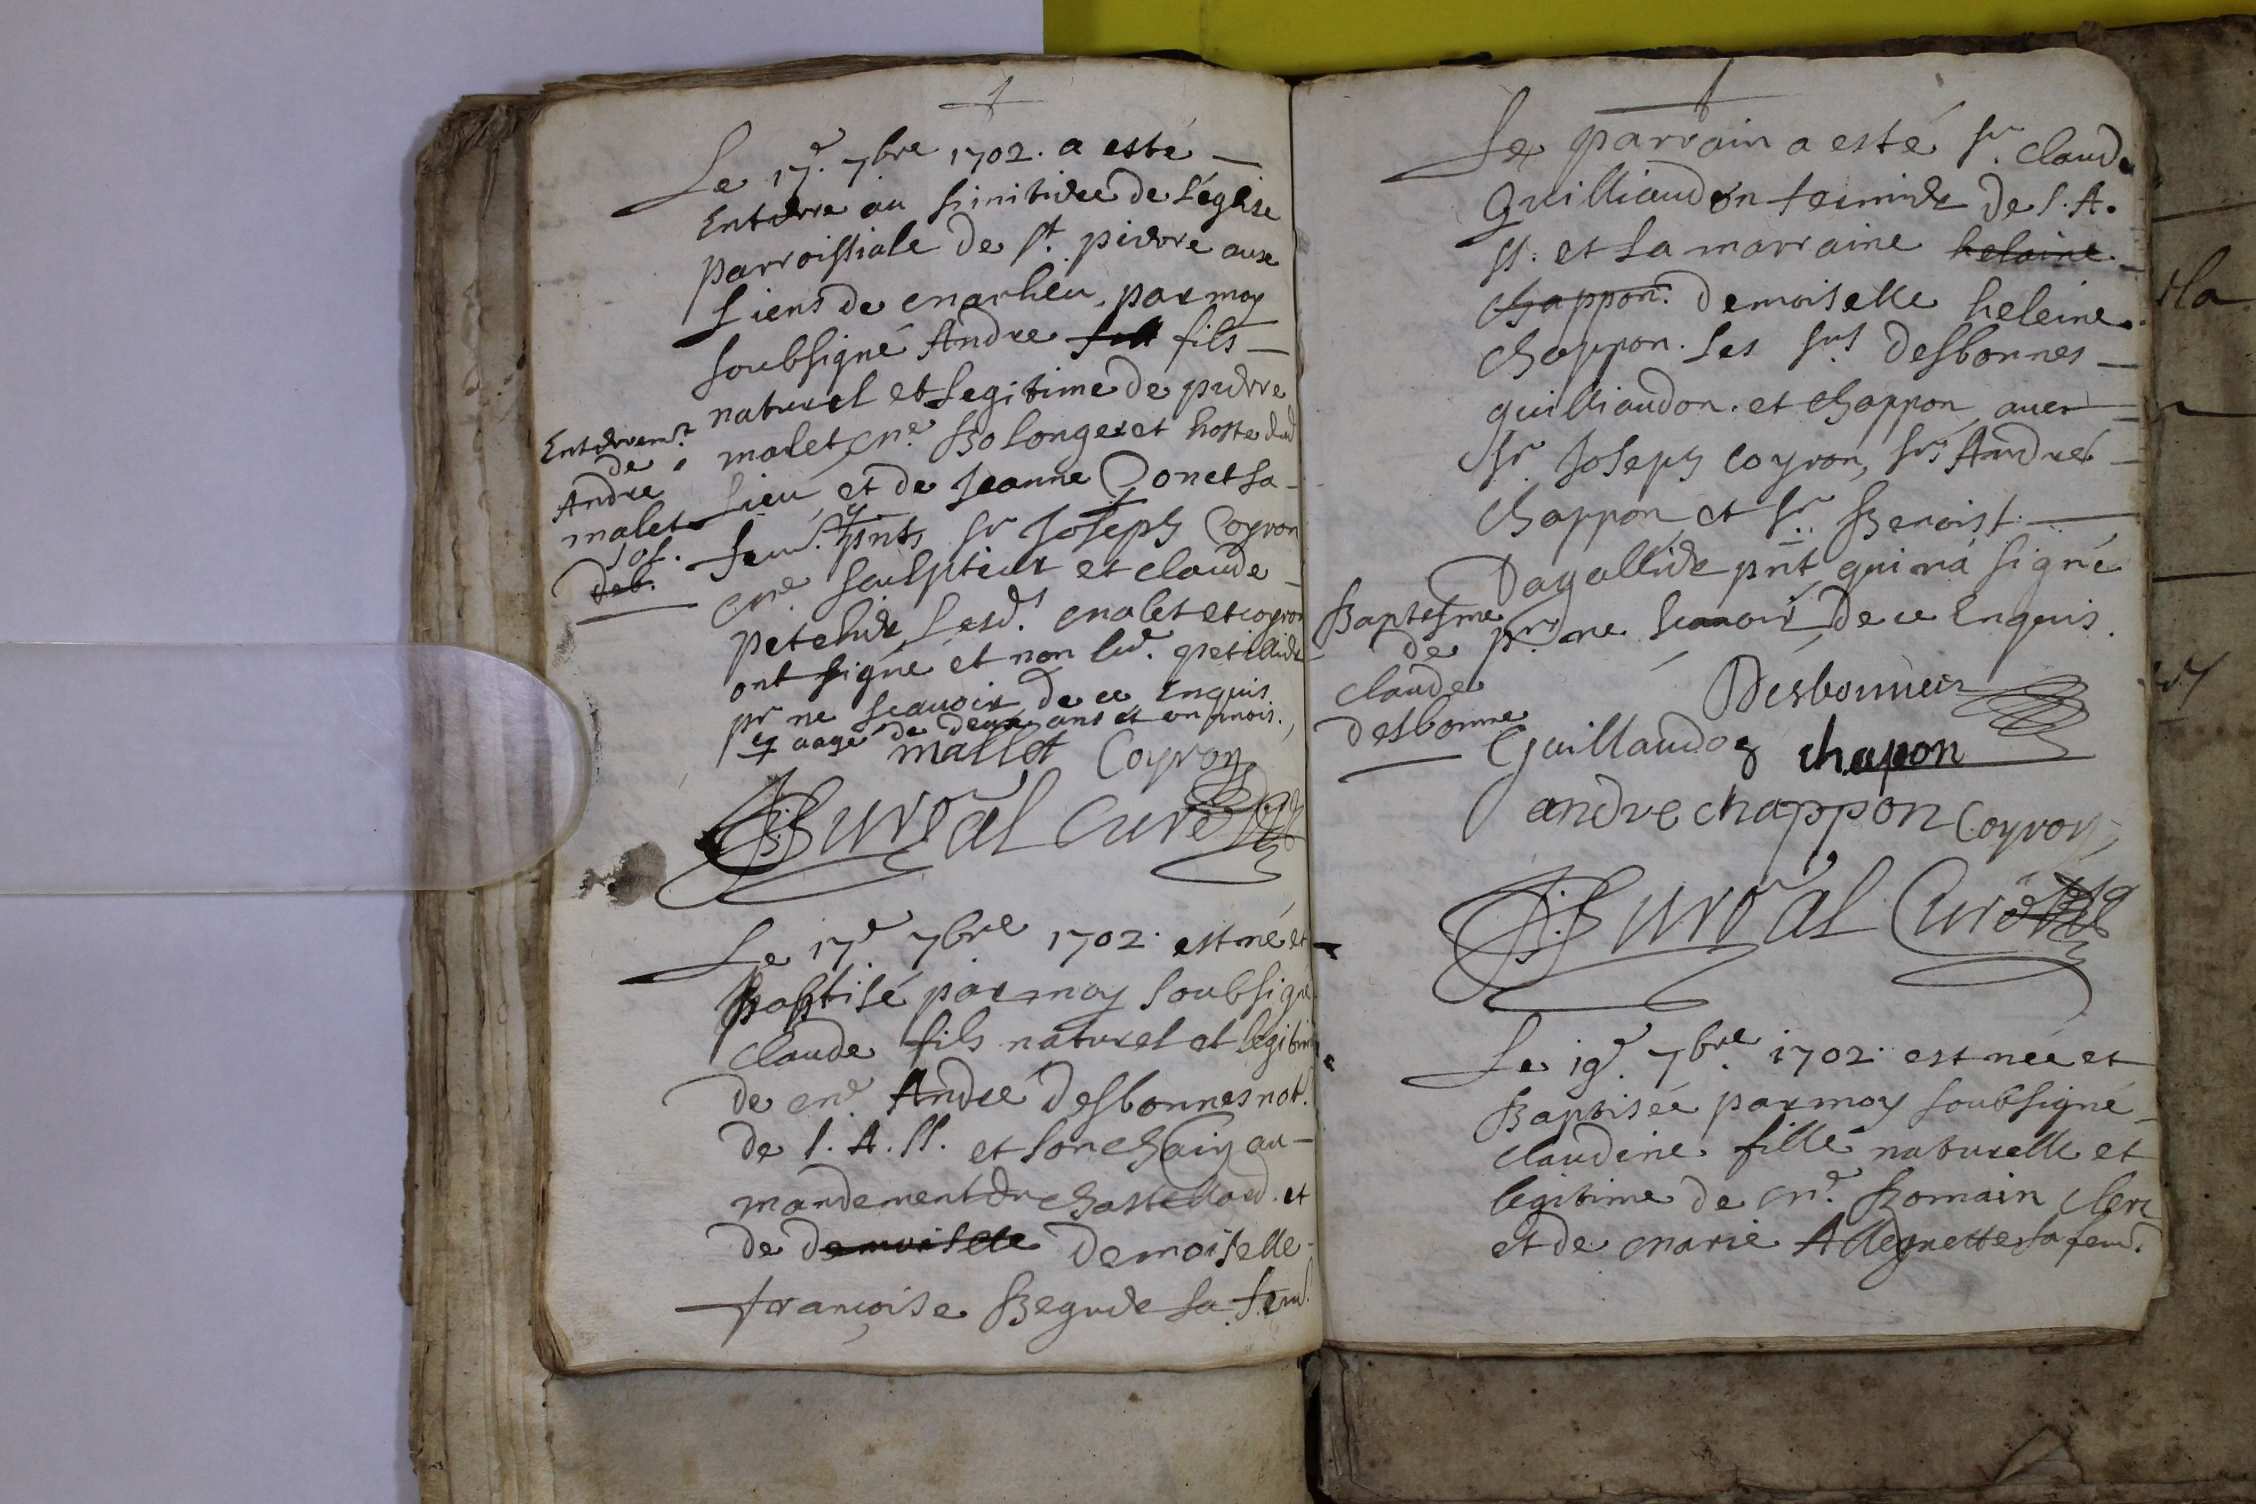 Le 17e. 7bre 1702. a esté
Enterre au simitiere de l'église
parroissiale de St. pierre aux
liens de marlieu, par moy
soubsigné Andre fils
naturel et legitime de pierre
malet me. Bolonger et hoste dud
lieu, et de Jeanne Conet sa
fem. pnts sr Joseph Coyron
me sculpteur et claude
petelier, lesd. malet et coyron
ont signé et non led. petillier
pr ne scauoir de ce Enquis
aagé de deux ans et un mois.
Enterremt.
de
Andre
malet
mallet Coyron
Burdal curé
Le 17e 7bre 1702. est né et
Baptisé par moy soubsigné
claude fils naturel et legitim
de me. André desbonnes not.
de S. A. SS. et son chain au
mandement du chastellard. et
de demoiselle demoiselle
francoise Begude sa fem.
Le parrain a esté sr. claude
Guilliaudon fermier de S. A.
SS. et la marraine helaine
chappon. demoiselle heleine
chappon. les srs desbonnes
guilliaudon. et chappon, auec
sr. Joseph coyron, sr. André
chappon et sr. Benoist
Dagallier pnt qui n'a signé
pr ne scauoir, De ce Enquis.
Baptesme
de
claude
desbonne
Desbonnes
Guillaudon chapon
andre chappon Coyron
Burdal Curé
Le 19e. 7bre. 1702. est née et
Baptisée par moy soubsigné
claudine fille naturelle et
legitime de me. Romain clerc
et de marie Allegrette sa fem.